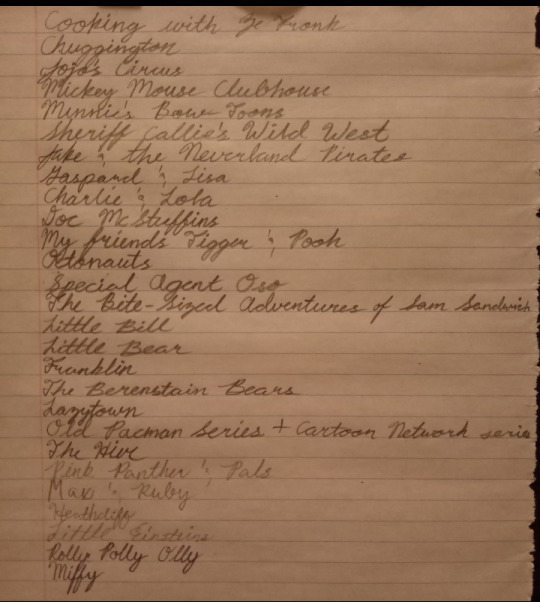 Cooking with Ze Fronk
Chuggington
Jojo's Circus
Mickey Mouse Clubhouse
Minnie's Bow Toons
Sheriff Callie's Wild West
Jake & the Neverland Pirates
Gaspard & Lisa
Charlie & Lola
Doc McStuffins
My friends Tigger & Pooh
Octonauts
Special Agent Oso
The Bite-Sized Adventures of Sam Sandwich
Little Bill
Little Bear
Franklin
The Berenstain Bears
Lazytown
Old Pacman series + Cartoon Network serie
The Hive
Pink Panther & Pals
Max & Ruby
Heathcliff
Little Einsteins
Rolly Polly Olly
Miffy